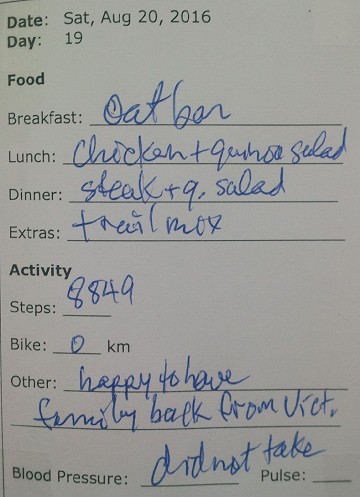 Date: Sat, Aug 20, 2016
Day: 19
Food
Breakfast: Oat bar
Lunch: Chicken + quinoa salad
Dinner: steak + q. salad
Extras: trail mix
Activity
Steps: 8849
Bike: 0 km
Other: happy to have
family back from Vict.
did not take
Blood Pressure: Pulse: